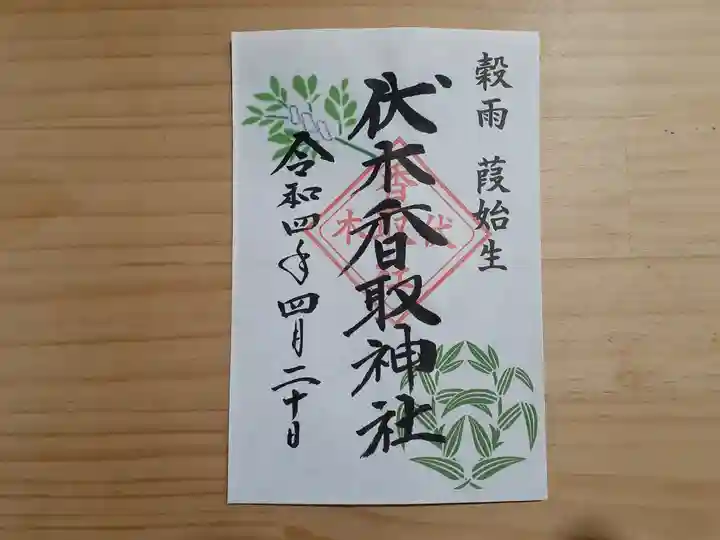 穀雨 葭始生
伏木香取神社
令和四年四月二十日
香取
伏木
社